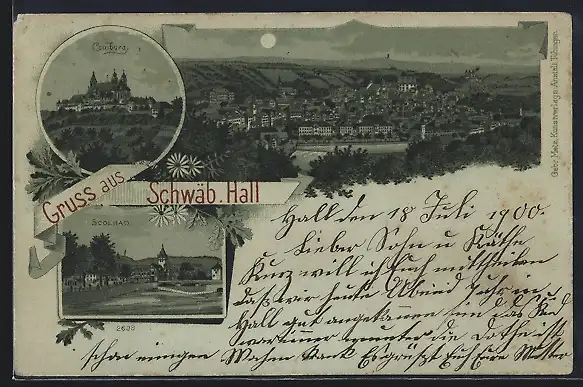 Comburg
Gruss aus Schwäb. Hall
Soolbad
2638
Gebr. Metz, Kunstverlags-Anstalt, Tübingen.
Hall den 18 Juli 1900.
Lieber Sohn u Käthe
Kurz will ich Euch mittheilen
daß wir heute Abend
Hall gut angekommen sind das
munter
schon einigen Wochen krank Es grüßt Euch Eure Mutter